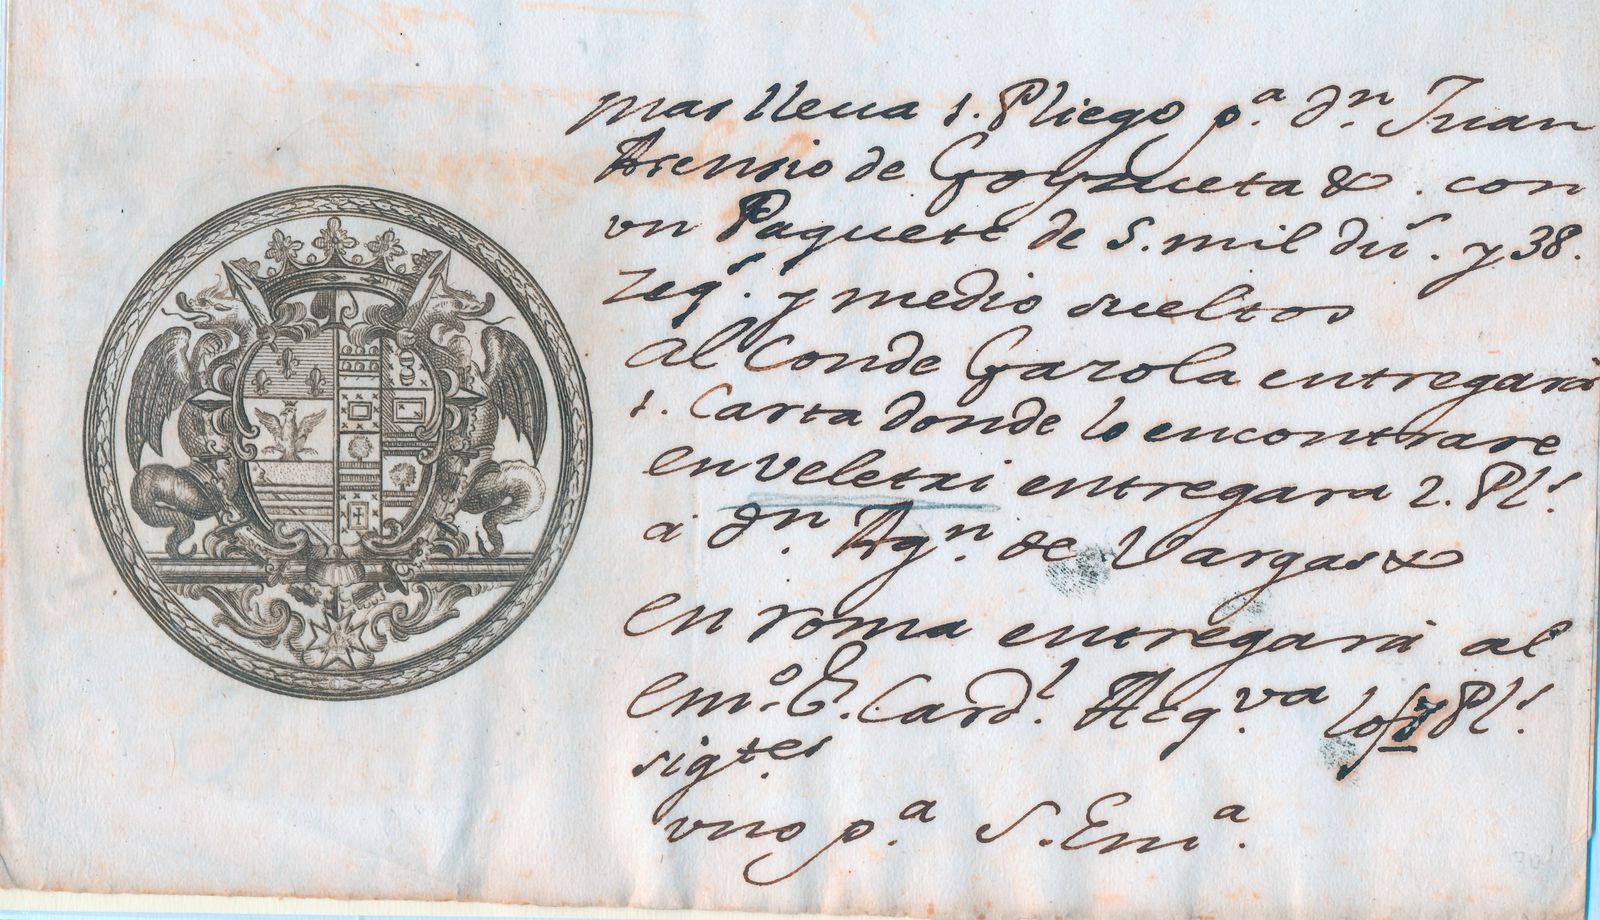 mas lleua 1. Pliego p.ª Dn. Juan
Arensio de Goyzueta & . con
vn Paquete de 5. mil du.s y 38.
zeq.s y medio sueltos
al Conde Gazola entregarà
1. Carta donde lo encontrare
en veletri entregara 2. Pl.s
a Dn. Agn. de Vargas &
en roma entregarà al
em.o S. Card.l Aeq.va los 7 Pl.s
sigtes.
vno p.ª S. Em.ª